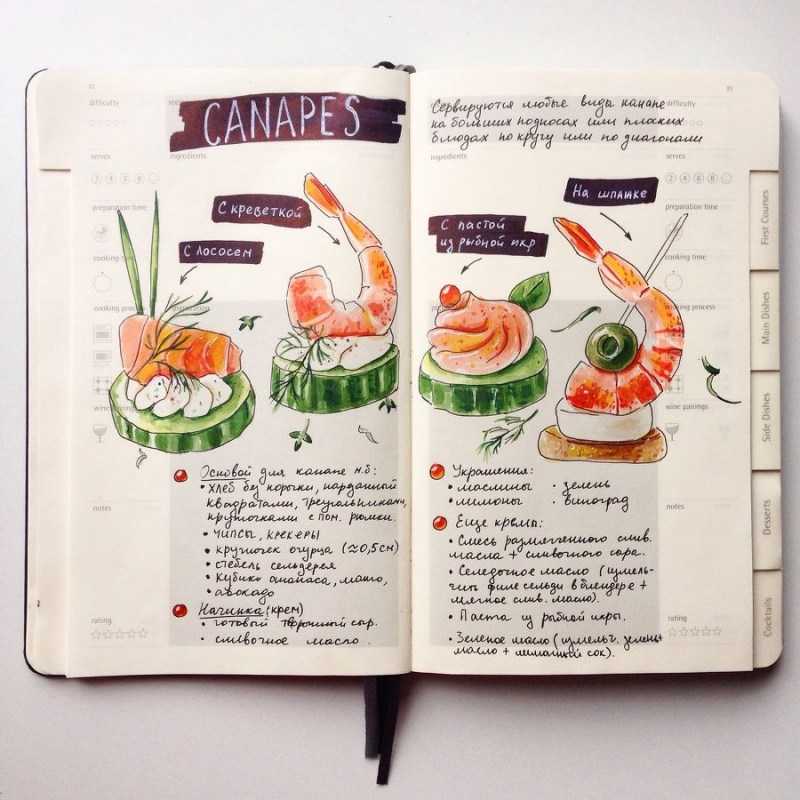 CANAPES
С лососем
С креветкой
Основой для канапе м.б:
• Хлеб без корочки, нарезанный
квадратами, треугольниками,
кружочками с пом. рюмки.
• Чипсы, крекеры
• кружочек огурца (≈0,5см)
• стебель сельдерея
• кубик ананаса, манго,
• авокадо
Начинка (крем)
• готовый творожный сыр.
• сливочное масло.
difficulty
serves
ingredients
preparation time
cooking time
cooking process
wine pairings
notes
rating
Сервируются любые виды канапе
на больших подносах или плоских
блюдах по кругу или по диагонали
С пастой
из рыбной икр
На шпажке
Украшения:
• маслины • зелень
• лимоны • виноград
Еще кремы:
• Смесь размягченного слив.
масла + сливочного сыра.
• Селедочное масло (измель-
чить филе сельди в блендере +
мягкое слив. масло).
• Паста из рыбной икры.
• Зеленое масло (измельч. зелень+
масло + лимонный сок).
difficulty
ingredients
serves
preparation time
cooking time
cooking process
wine pairings
notes
rating
First Courses
Main Dishes
Side Dishes
Desserts
Cocktails